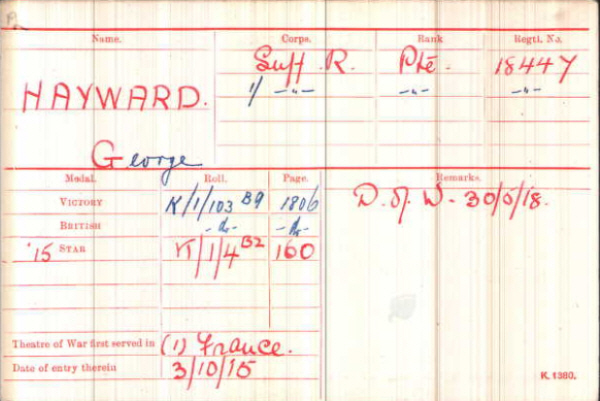 Name. Corps. Rank Regtl. No.
HAYWARD. Suff. R. Pte. 18447
1/ -"- -"- -"-
George
Medal. Roll. Page. Remarks.
VICTORY K/1/103 B9 1806 D. of W. 30/5/18.
BRITISH -do- -do-
'15 STAR K/1/4 B2 160
Theatre of War first served in (1) France.
Date of entry therein 3/10/15
K. 1380.